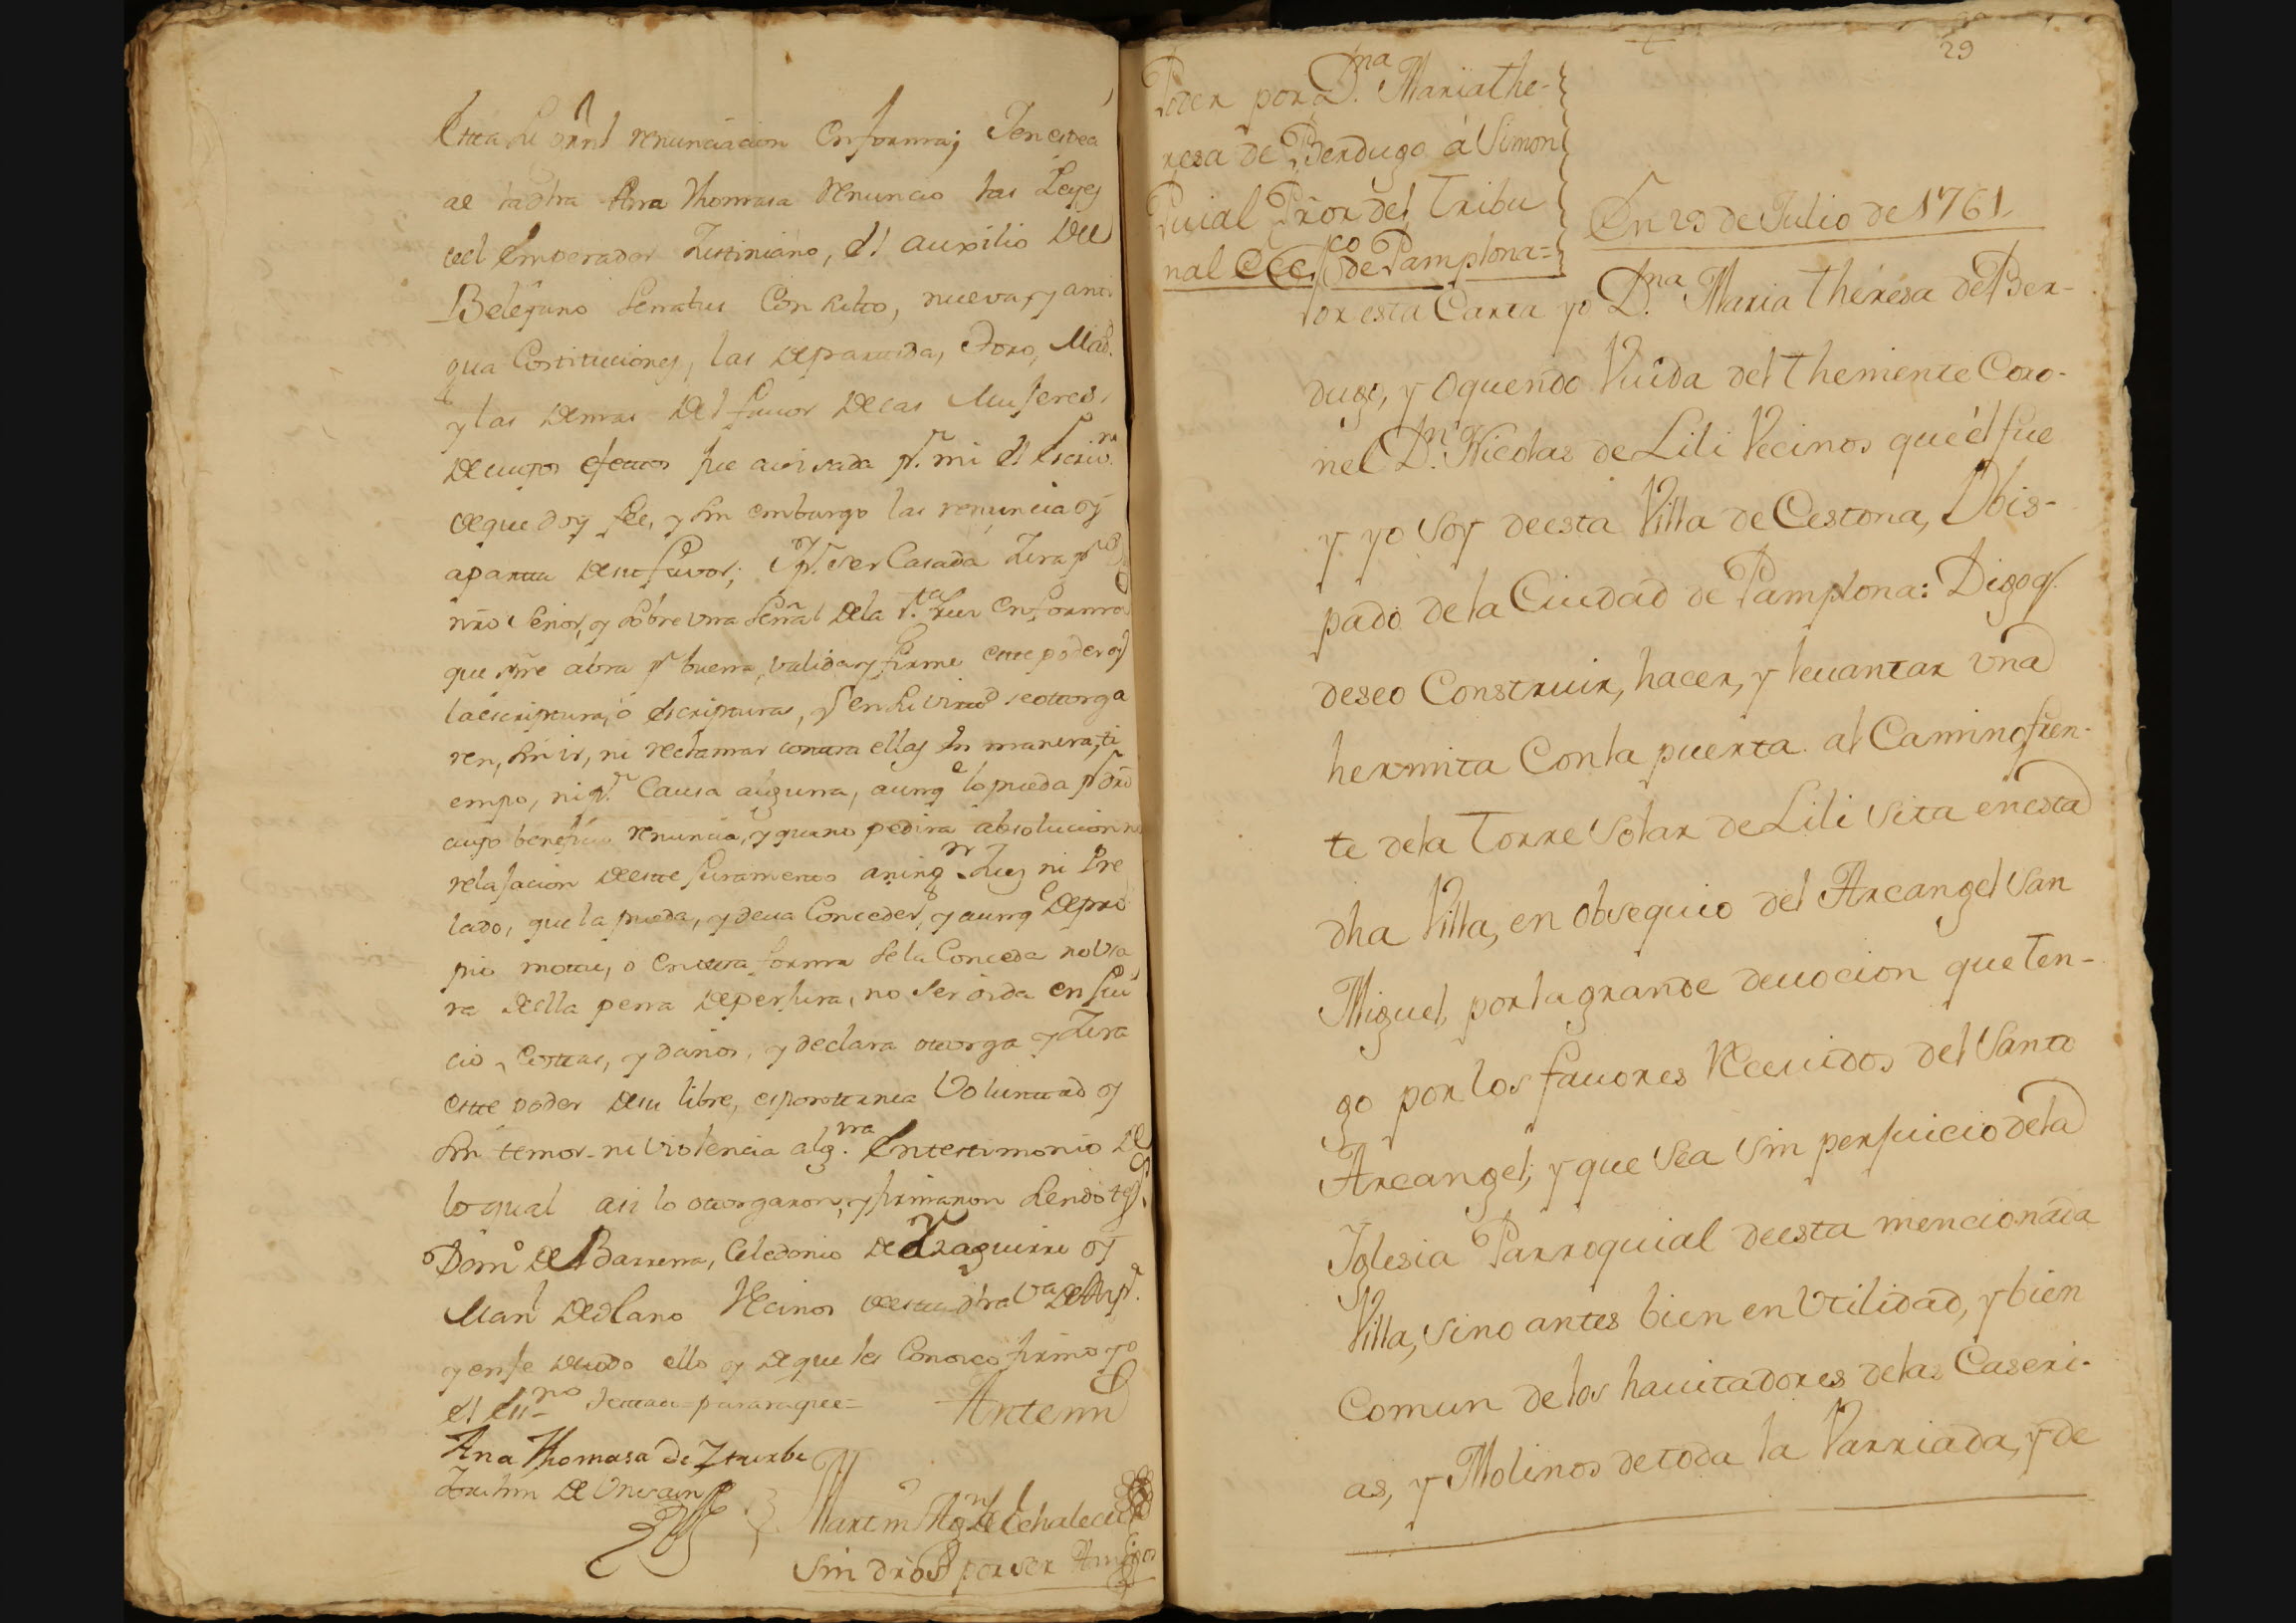 renunciacion en forma; 
ae la dha Ana Thomasa renuncio las Leyes
del Emperador Justiniano, el auxilio del
Belejano Senatus Consulto, nueva, y anti
gua Costituciones, las de partida, Toro, Mad.
y las demas del favor de las Mujeres,
de cuyos efectos fue avisada pr. mi el Escriv.no
de que doy fee, y sin embargo las renuncia y
aparta de su favor; y pr. ser Casada Jura pr. D
nro Señor, y sobre una señal de la s.ta Cruz en forma
que spre abra pr buena, valida, y firme este poder y
la escriptura, o escripturas, q en su virtud se otorga
ren, sin ir, ni reclamar contra ellas en manera, ti
empo, ni pr. Causa alguna, aunq.e lo pueda pr dro
cuyo beneficio renuncia, y que no pedira absolucion ni
relajacion de este juramento a ning.n Juez ni Pre
lado, que la pueda, y deva Conceder, y aunq.e de pro
pio motu, o en otra forma se la Conceda no usa
ra della pena de perjura, no ser oida en jui
cio, costas, y daños, y declara otorga y Jura
este poder de su libre, espontanea Voluntad y
sin temor ni violencia alg.na En testimonio de
lo qual asi lo otorgaron, y firmaron siendo tes.
Dom.o de Barrena, Celedonio de Yzaguirre y
Man.l de Olano Vecinos de esta dha V.a de
y en fe de todo ello y de que les Conozco firmo yo
el ess.no = Ante mi
Ana Thomasa de Yturbe
Joachin de Unsain
Martin Ag.n de Echalecu
Sin dros por ser Amigos
29
Poder por D.na Maria the-
resa de Berdugo á Simon
Puial Pror del Tribu
nal Ecc.co de Pamplona=
En 29 de Julio de 1761
Por esta Carta yo D.na Maria theresa de Ber-
dugo, y Oquendo Viuda del theniente Coro-
nel D.n Nicolas de Lili Vecinos que él fue
y yo soy de esta Villa de Cestona, Obis-
pado de la Ciudad de Pamplona: Digo q.
deseo Construir, hacer, y levantar una
hermita Con la puerta al Camino fren-
te de la Torre Solar de Lili sita en esta
dha Villa, en obsequio del Arcangel San
Miguel, por la grande devocion que ten-
go por los favores Recevidos del Santo
Arcangel; y que sea sin perjuicio de la
Iglesia Parroquial de esta mencionada
Villa, sino antes bien en Utilidad, y bien
Comun de los havitadores de las Caseri-
as, y Molinos de toda la Varriada, y de